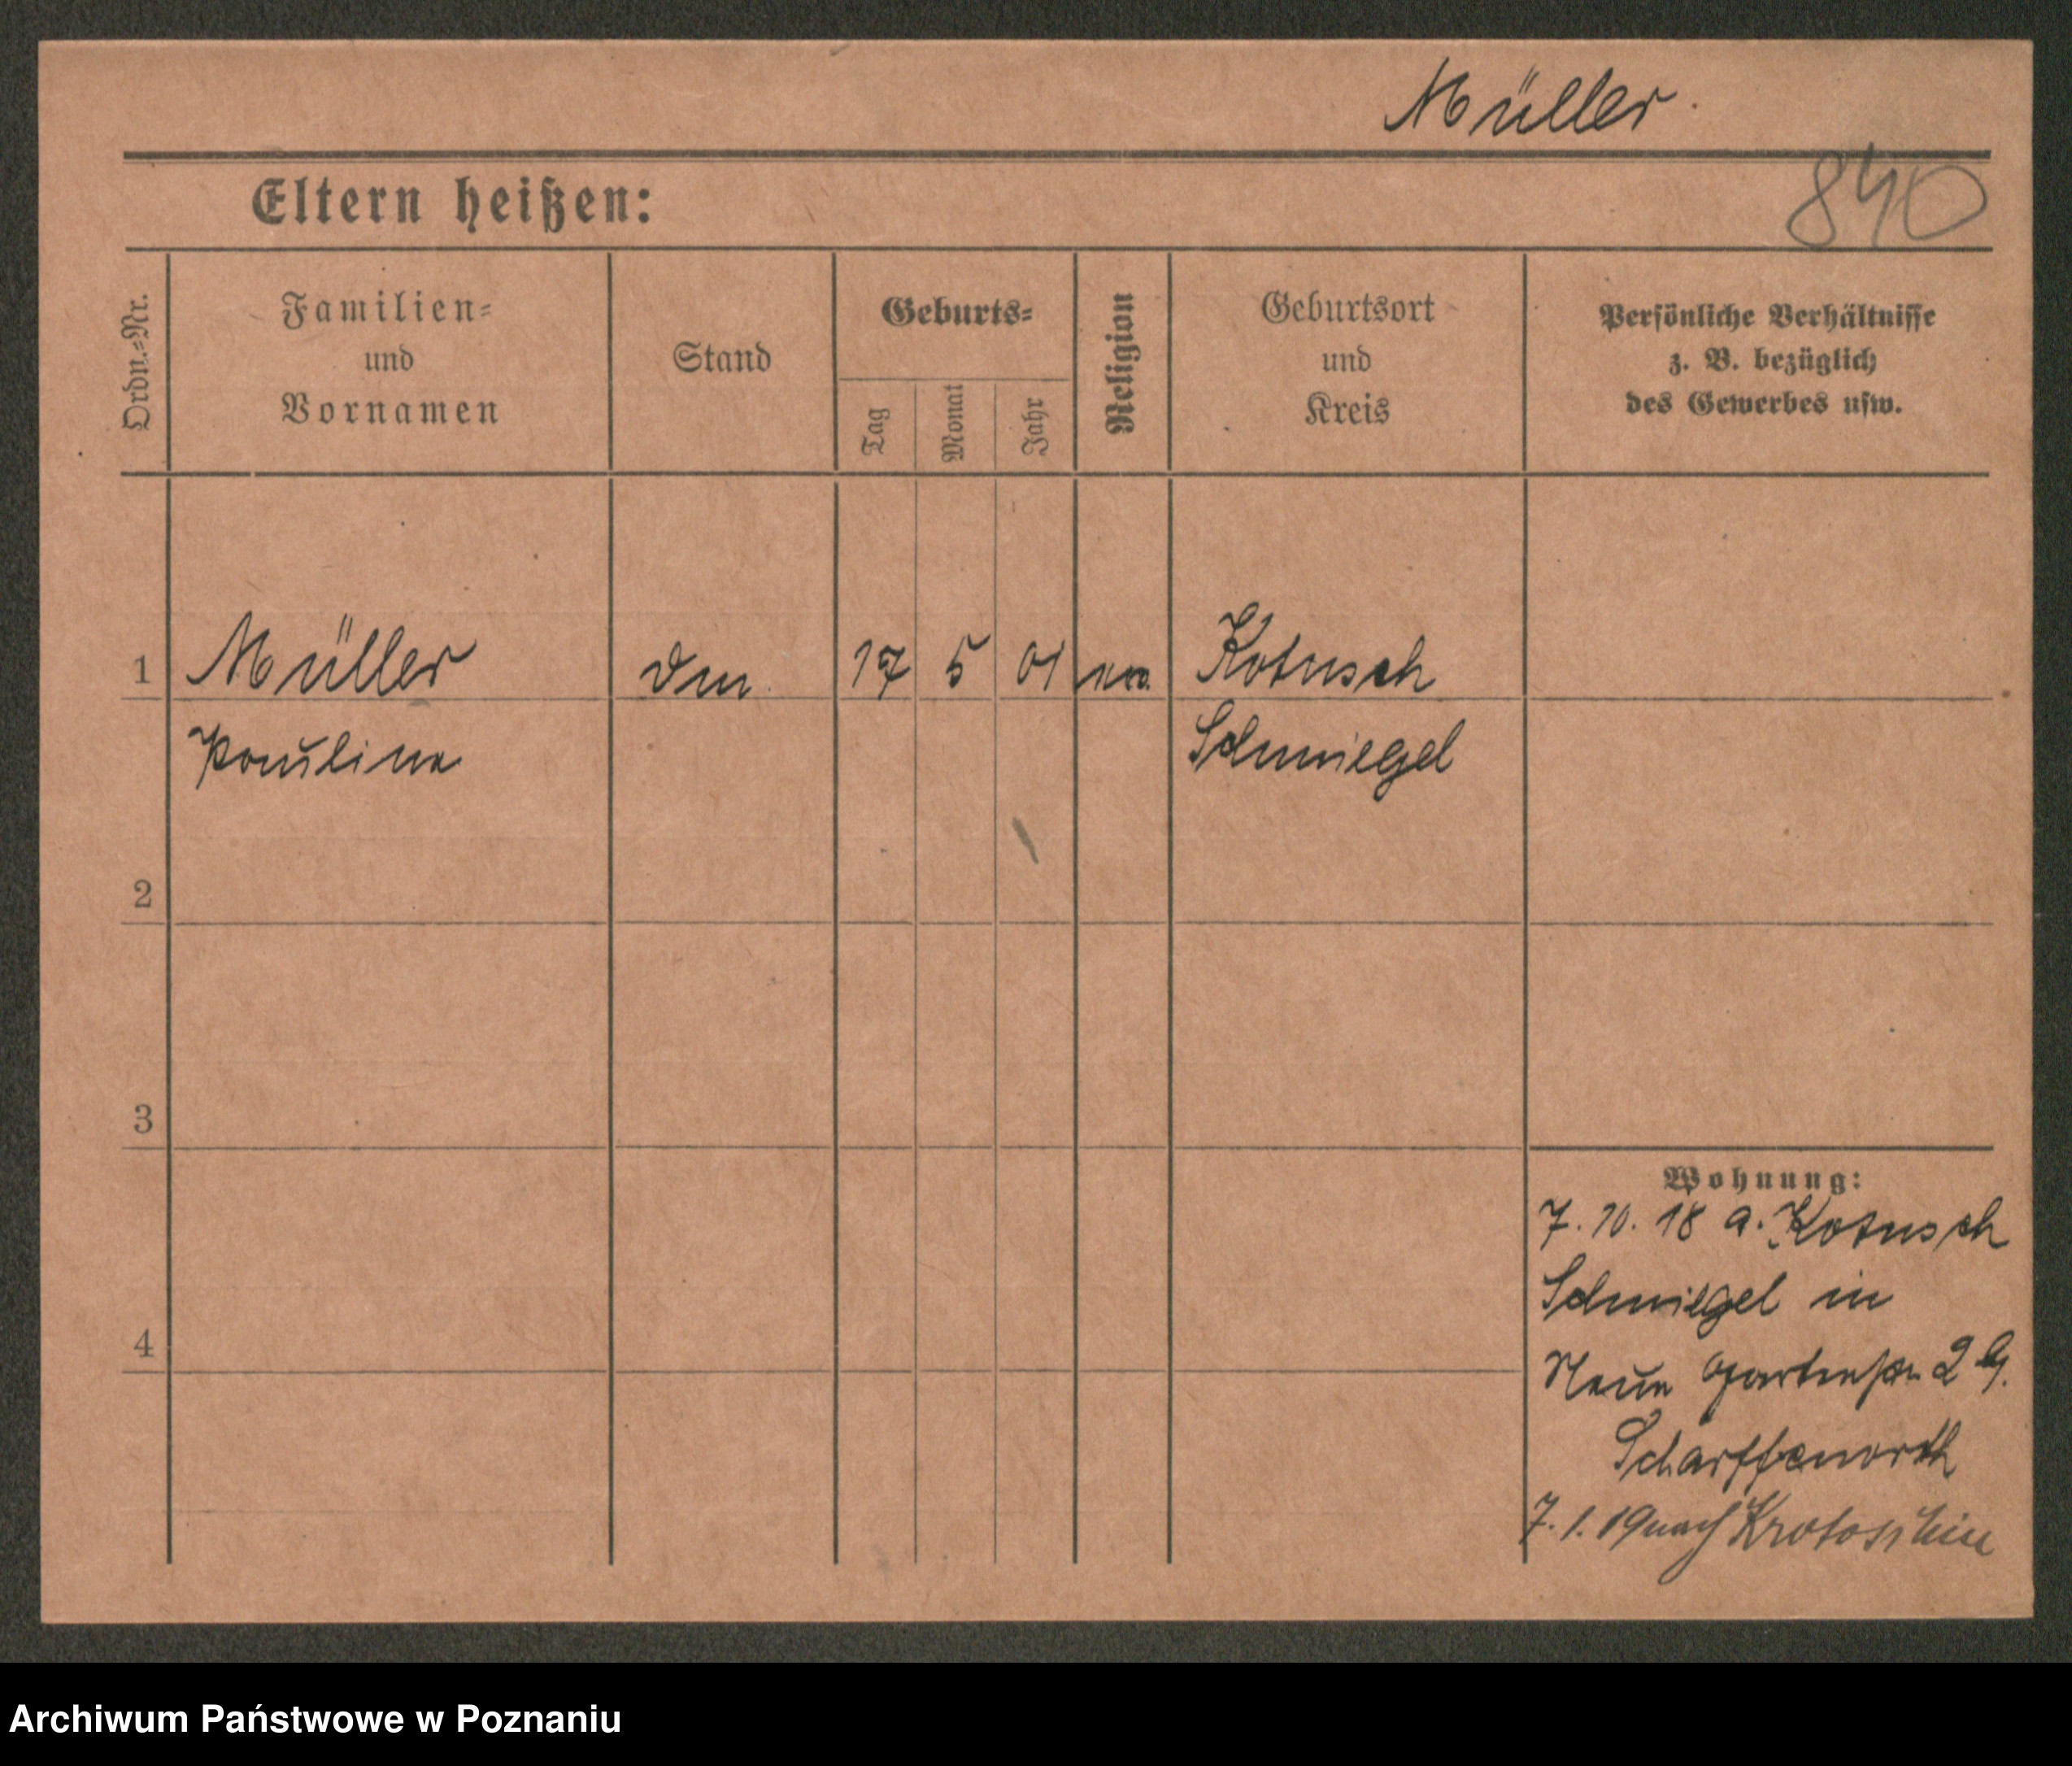 Müller.
840
Eltern heißen:
Ordn.-Nr.
Familien-
und
Vornamen
Stand
Geburts-
Tag
Monat
Jahr
Religion
Geburtsort
und
Kreis
Persönliche Verhältnisse
z. B. bezüglich
des Gewerbes usw.
1 Müller 17 5 01 Kotusch
Pauline Schmiegel
2
3
4
Wohnung:
7. 10. 18 a. Kotusch
Schmiegel in
Neue Gartenstr. 2
Scharffenorth
7. 1. 19 nach Krotoschin
Archiwum Państwowe w Poznaniu